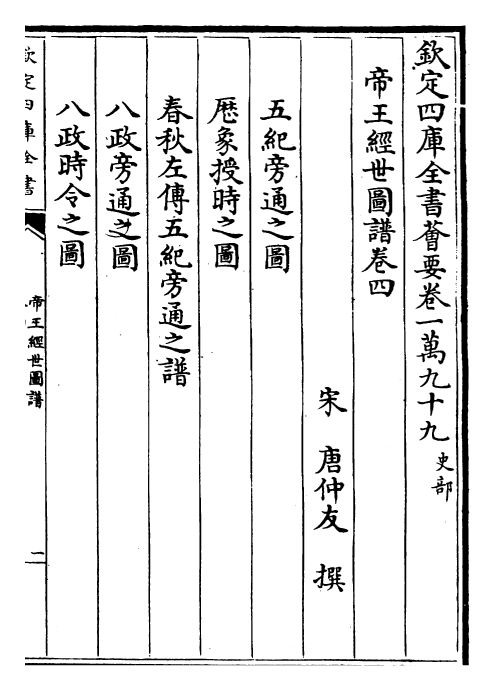 欽定四庫全書薈要卷一萬九十九 史部
帝王經世圖譜卷四
宋 唐仲友 撰
五紀旁通之圖
厯象授時之圖
春秋左傳五紀旁通之譜
八政旁通之圖
八政時令之圖
欽定四庫全書
帝王經世圖譜
二